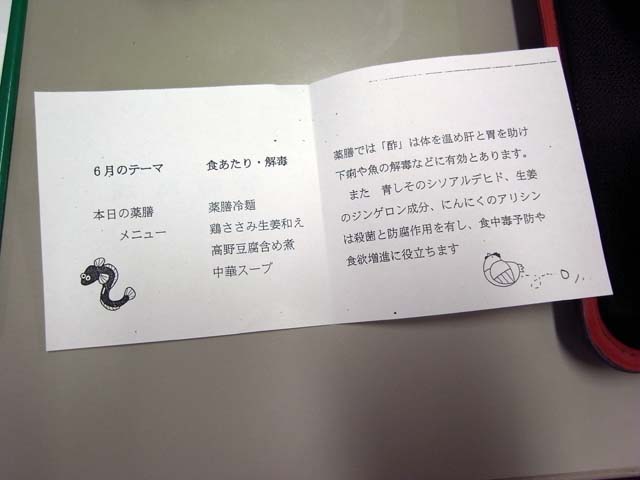 6月のテーマ 食あたり・解毒
本日の薬膳 薬膳冷麺
メニュー 鶏ささみ生姜和え
高野豆腐含め煮
中華スープ
薬膳では「酢」は体を温め肝と胃を助け
下痢や魚の解毒などに有効とあります。
また 青しそのシソアルデヒド、生姜
のジンゲロン成分、にんにくのアリシン
は殺菌と防腐作用を有し、食中毒予防や
食欲増進に役立ちます